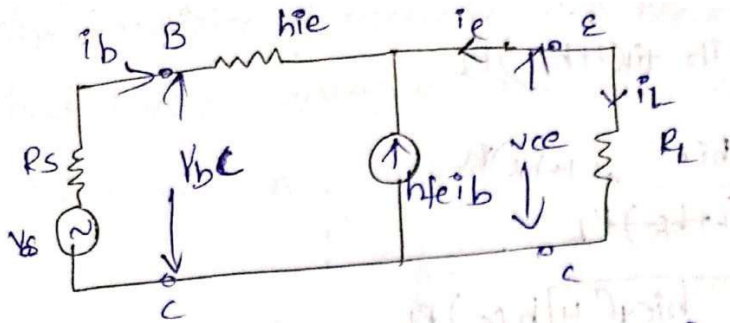 ib B hie ie E
iL
RS Vbc hfeib vce RL
Vs
C C